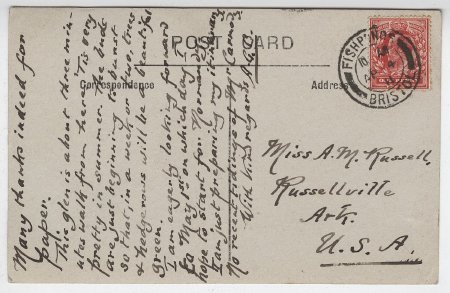 POST CARD
Correspondence
Address
FISHPONDS
BRISTOL
Many thanks indeed for
paper.
This glen is about three min-
utes walk from here. 'Tis very
pretty in summer. The buds
are just beginning to burst
so that, in a week or two, trees
& hedgerows will be beautiful
green.
I am eagerly looking forward
to May 15 on which day I
hope to start for Norway.
I am just preparing my itinerary.
No recent tidings of Mr
With kind regards A.G.C.
Miss A. M. Russell,
Russellville
Ark.
U. S. A.